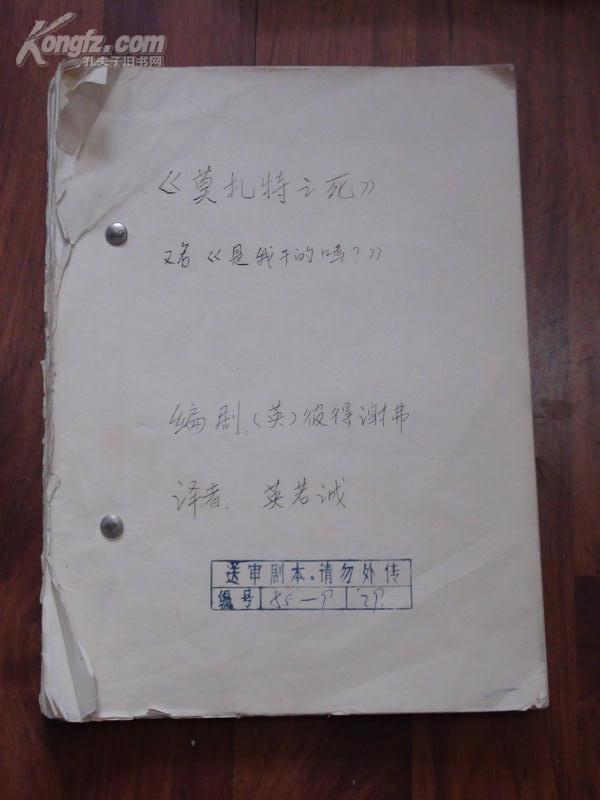 Kongfz.com
孔夫子旧书网
《莫扎特之死》
又名《是我干的吗？》
编剧：（英）彼得谢弗
译者：英若诚
送审剧本·请勿外传
编号 85—9